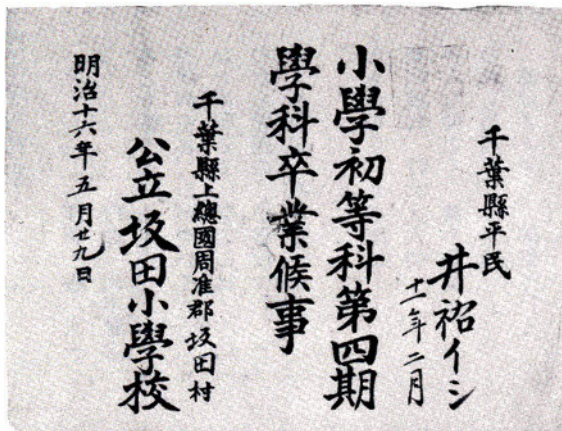 千葉縣平民
井祐イシ
十一年二月
小學初等科第四期
學科卒業候事
千葉縣上總國周准郡坂田村
公立坂田小學校
明治十六年五月廿九日